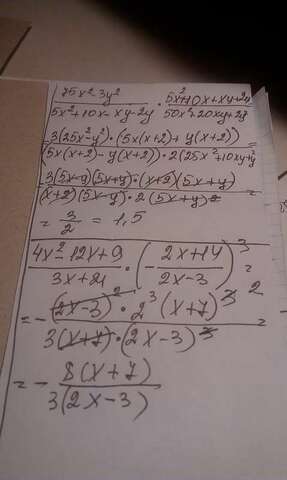 75x²-3y² / 5x²+10x-xy-2y · 5x²+10x+xy+2y / 50x²+20xy+2y =
= 3(25x²-y²)·(5x(x+2)+y(x+2)) / (5x(x+2)-y(x+2)·2(25x²+10xy+y² =
3(5x-y)(5x+y)·(x+2)(5x+y) / (x+2)(5x-y)·2(5x+y)² =
= 3/2 = 1,5
4x²-12x+9 / 3x+21 · (- 2x+14 / 2x-3)³ =
= - (2x-3)²·2³(x+7)³ ² / 3(x+7)·(2x-3)³ =
= - 8(x+7) / 3(2x-3)